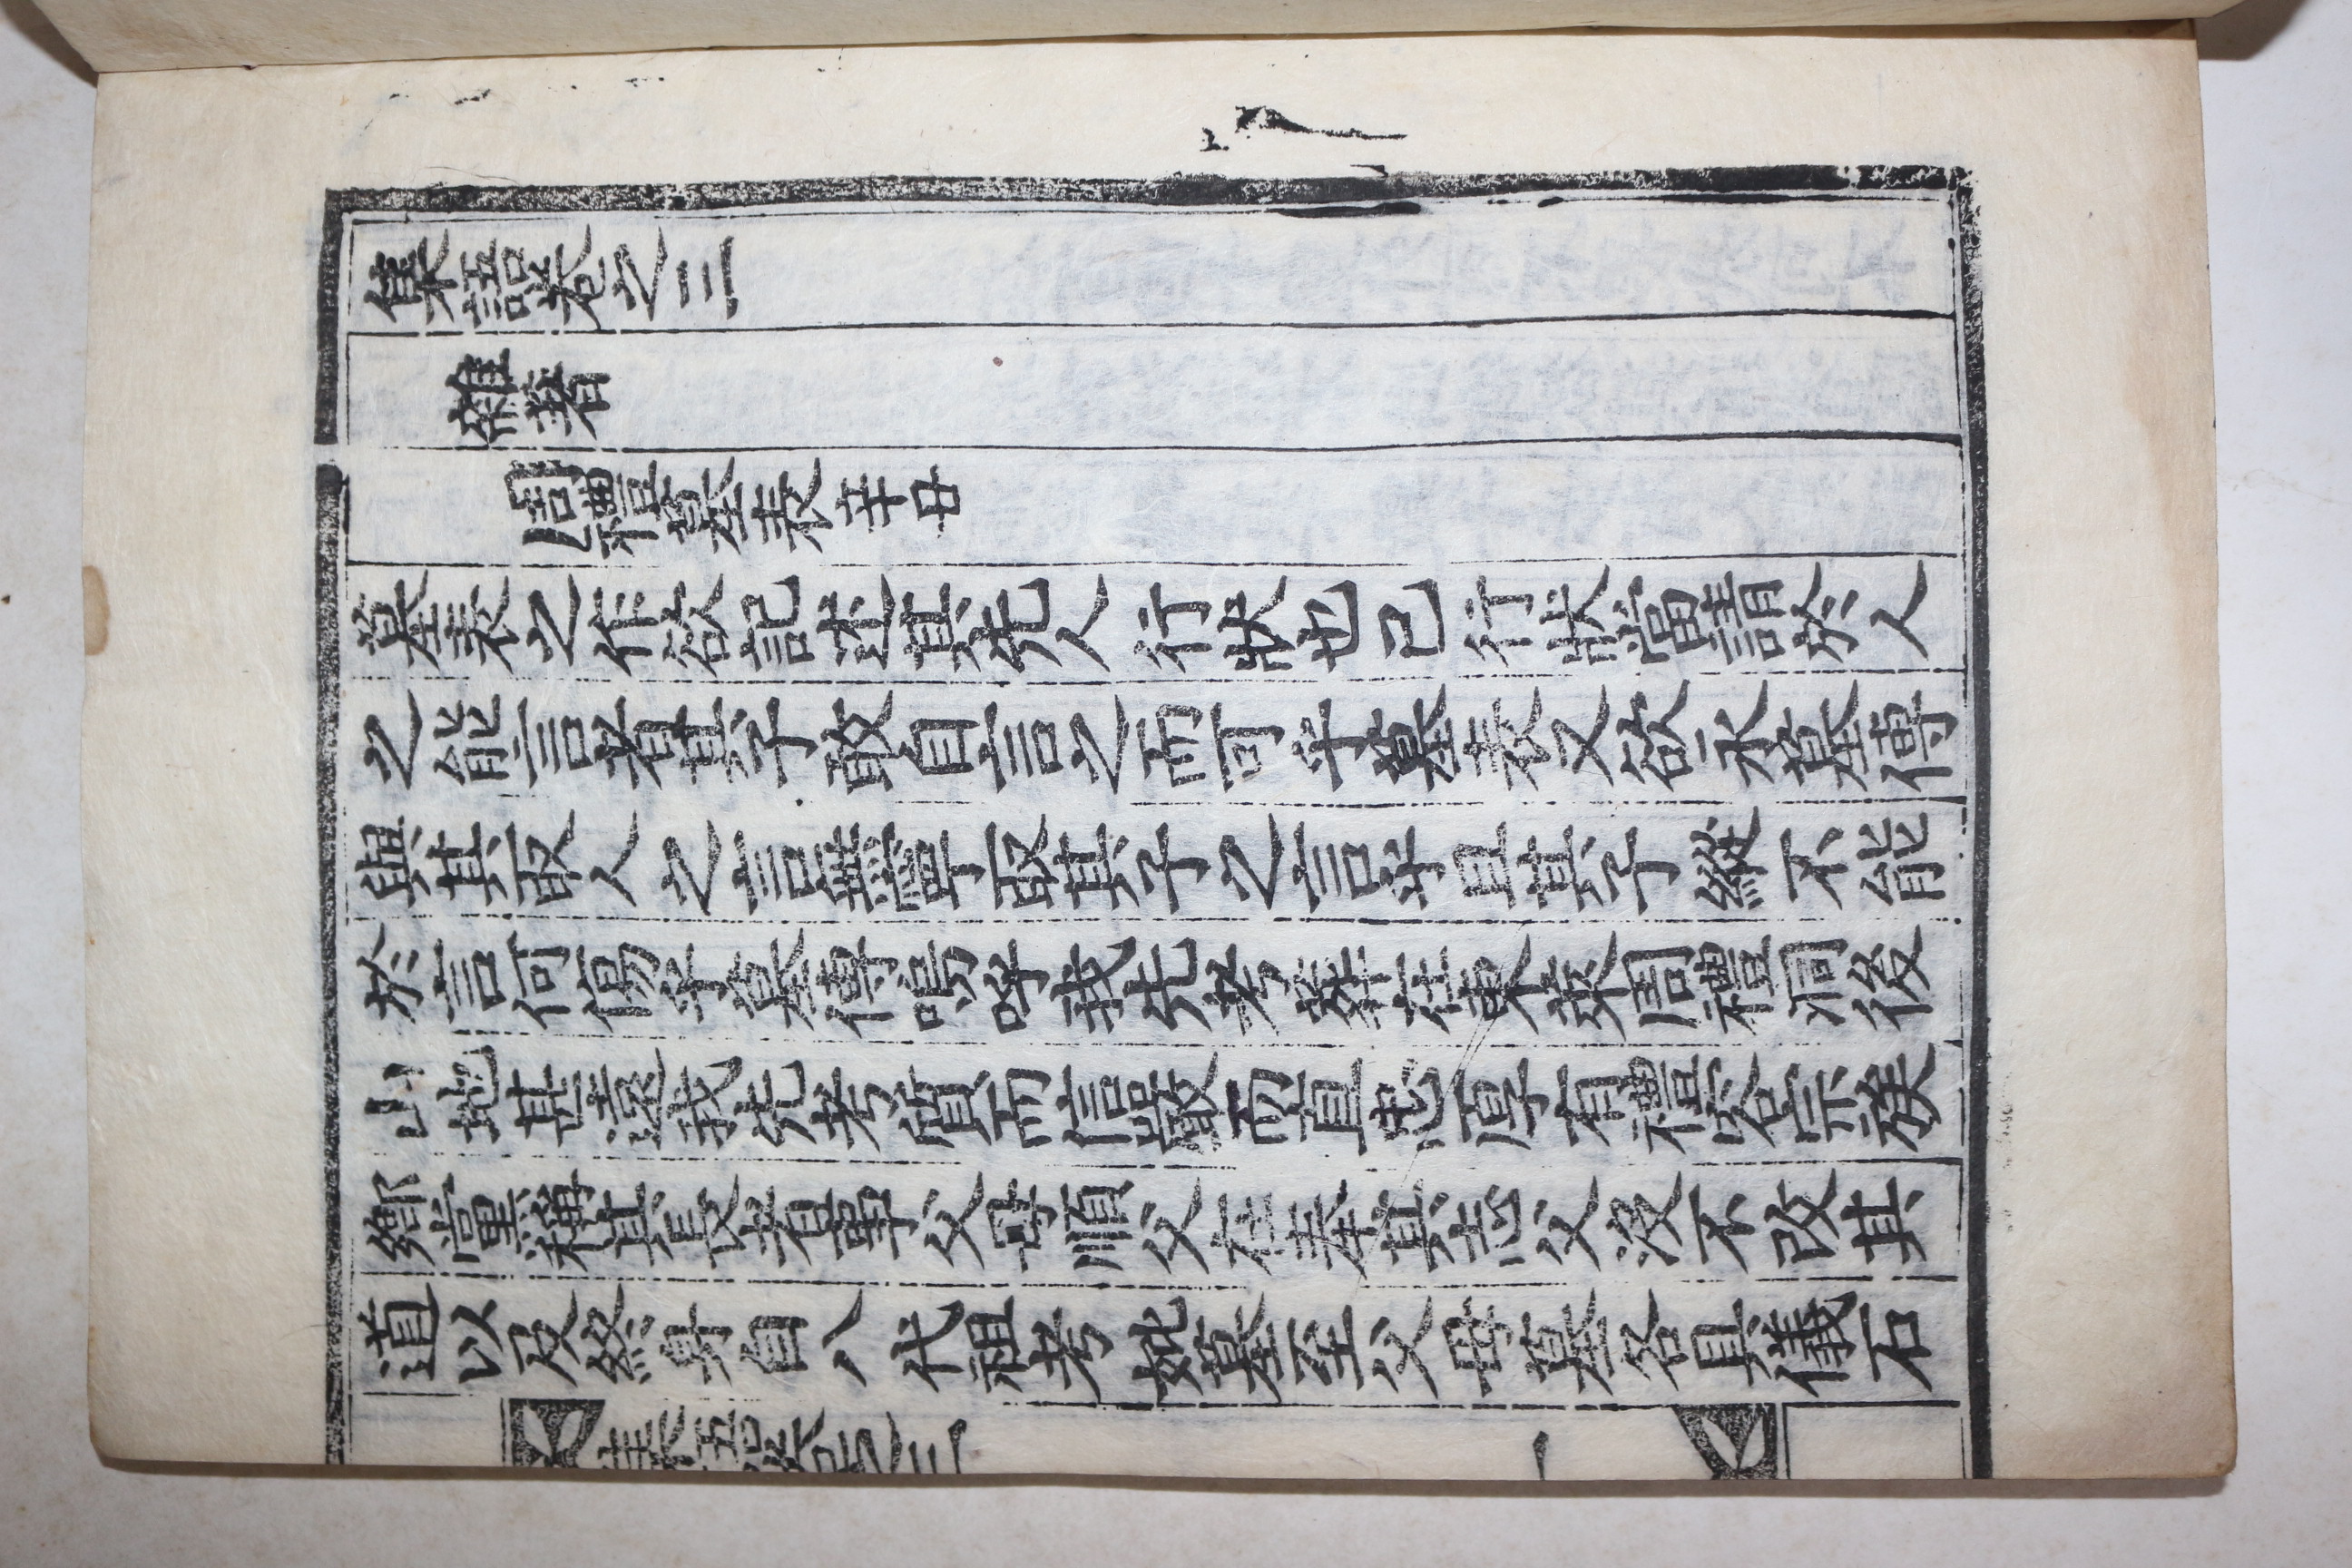 巢語卷之三
雜著
周禮墓表辛丑
墓表之作欲記述其先人行狀也已行狀當請於人
之能言者其子敢自言之而可乎墓表又欲求墓傳
與其取人之言無寧取其子之言乎且其子縱不能
於言何傷乎墓傳嗚呼我先考葬在𡊮周禮洞後
山地甚遠我先考質而信嚴而直忠厚有禮洽宗族
鄕黨稱其長者事父母順父在奉其志父沒不改其
道以及終身自八代祖考妣墓至父母墓各具儀石
巢語卷之三 一